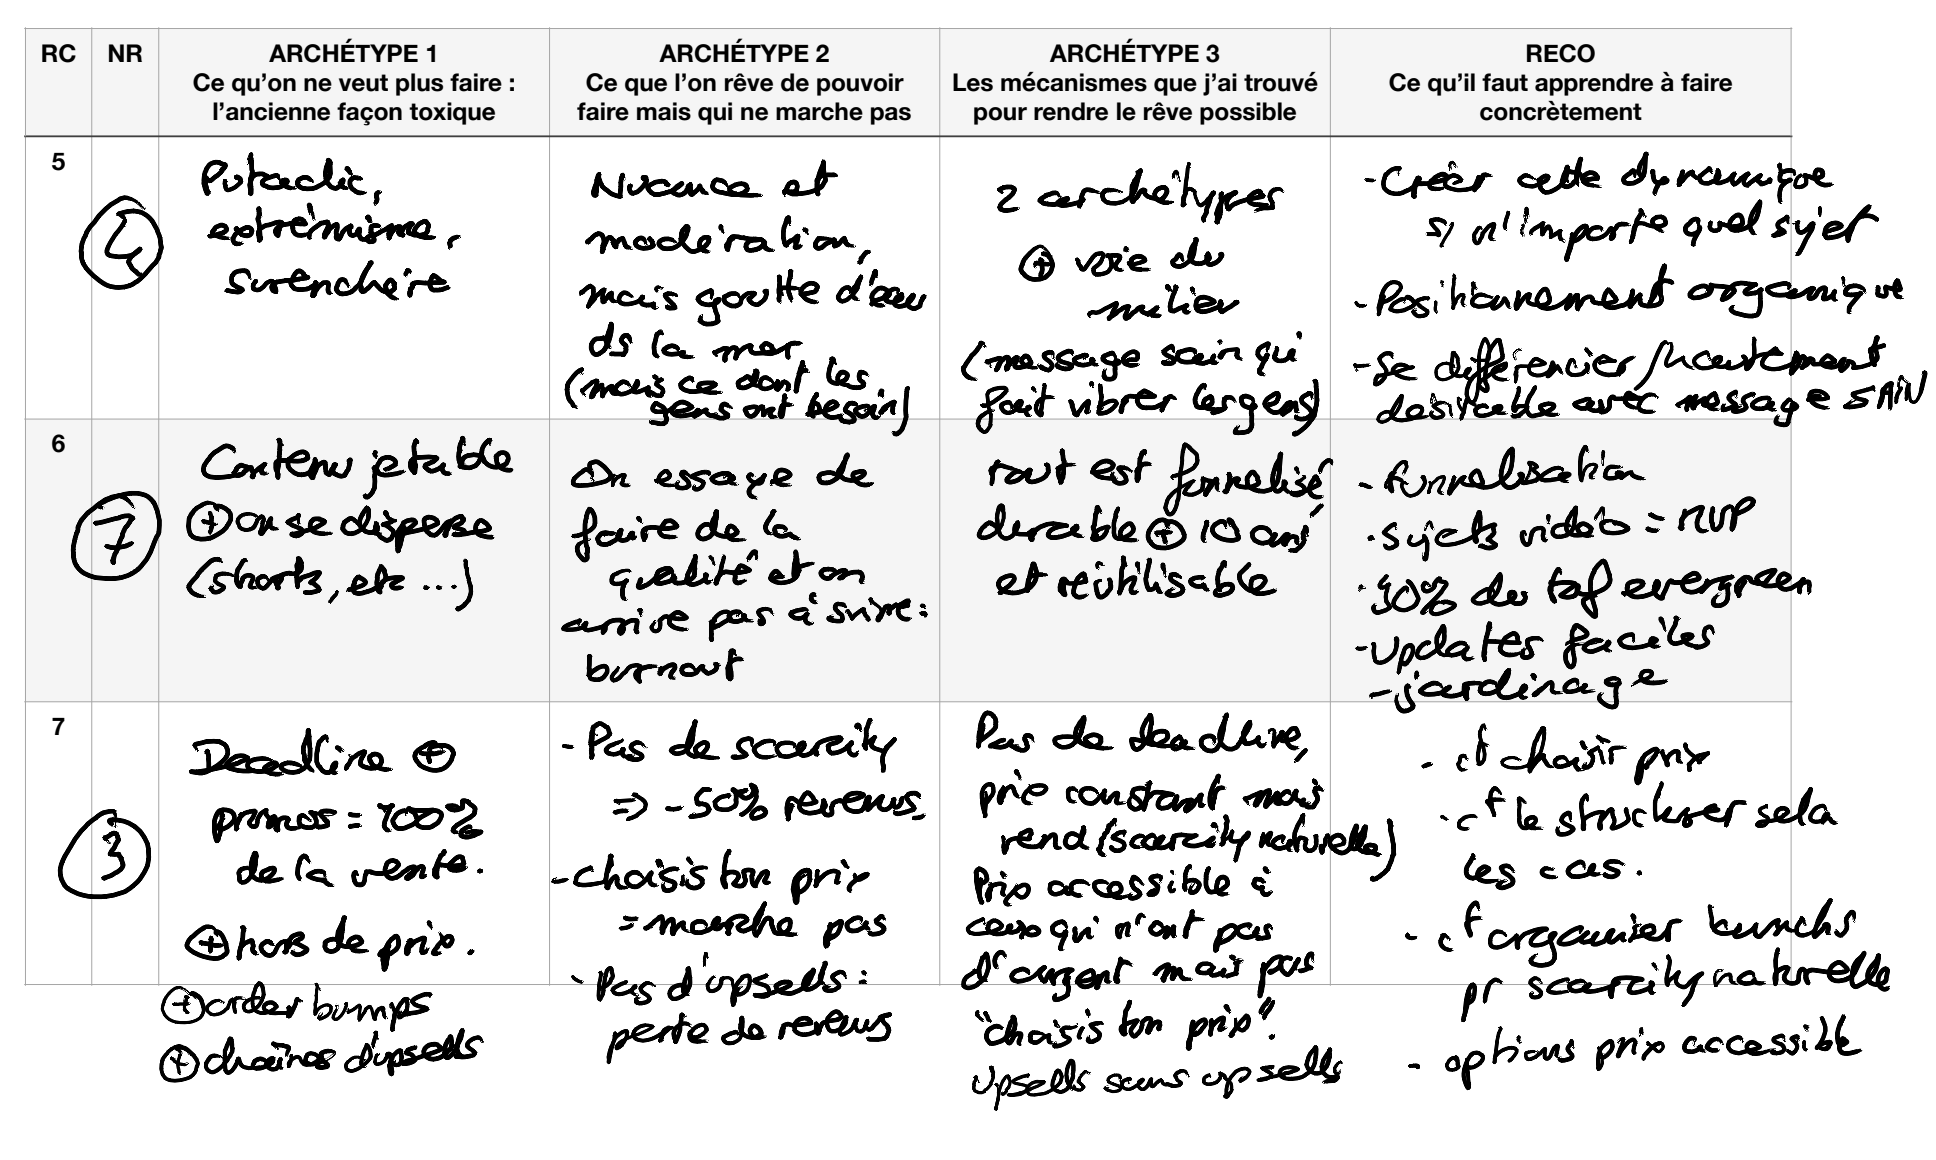 RC
NR
ARCHÉTYPE 1
Ce qu'on ne veut plus faire :
l'ancienne façon toxique
ARCHÉTYPE 2
Ce que l'on rêve de pouvoir
faire mais qui ne marche pas
ARCHÉTYPE 3
Les mécanismes que j'ai trouvé
pour rendre le rêve possible
RECO
Ce qu'il faut apprendre à faire
concrètement
5
4
Putaclic,
extrémisme,
surenchère
Nuance et
modération,
mais goutte d'eau
ds la mer
(mais ce dont les
gens ont besoin)
2 archétypes
+ voie du
milieu
(message sain qui
fait vibrer les gens)
- Créer cette dynamique
s/ n'importe quel sujet
- Positionnement organique
- Se différencier / hautement
désirable avec message SAIN
6
7
Contenu jetable
+ on se disperse
(shorts, etc ...)
On essaye de
faire de la
qualité et on
arrive pas à suivre :
burnout
Tout est funnelisé,
durable + 10 ans
et réutilisable
- funnelisation
- Sujets vidéo = MVP
- 90% du taf evergreen
- Updates faciles
- jardinage
7
3
Deadline +
promos = 100%
de la vente.
+ hors de prix.
+ order bumps
+ chaînes d'upsells
- Pas de scarcity
=> -50% revenus.
- choisis ton prix
= marche pas
- Pas d'upsells :
perte de revenus
Pas de deadline,
prix constant mais
rend (scarcity naturelle)
Prix accessible à
ceux qui n'ont pas
d'argent mais pas
"choisis ton prix".
Upsells sans upsells
- ct choisir prix
- ct le structurer selon
les cas.
- ct organiser launchs
pr scarcity naturelle
- options prix accessible